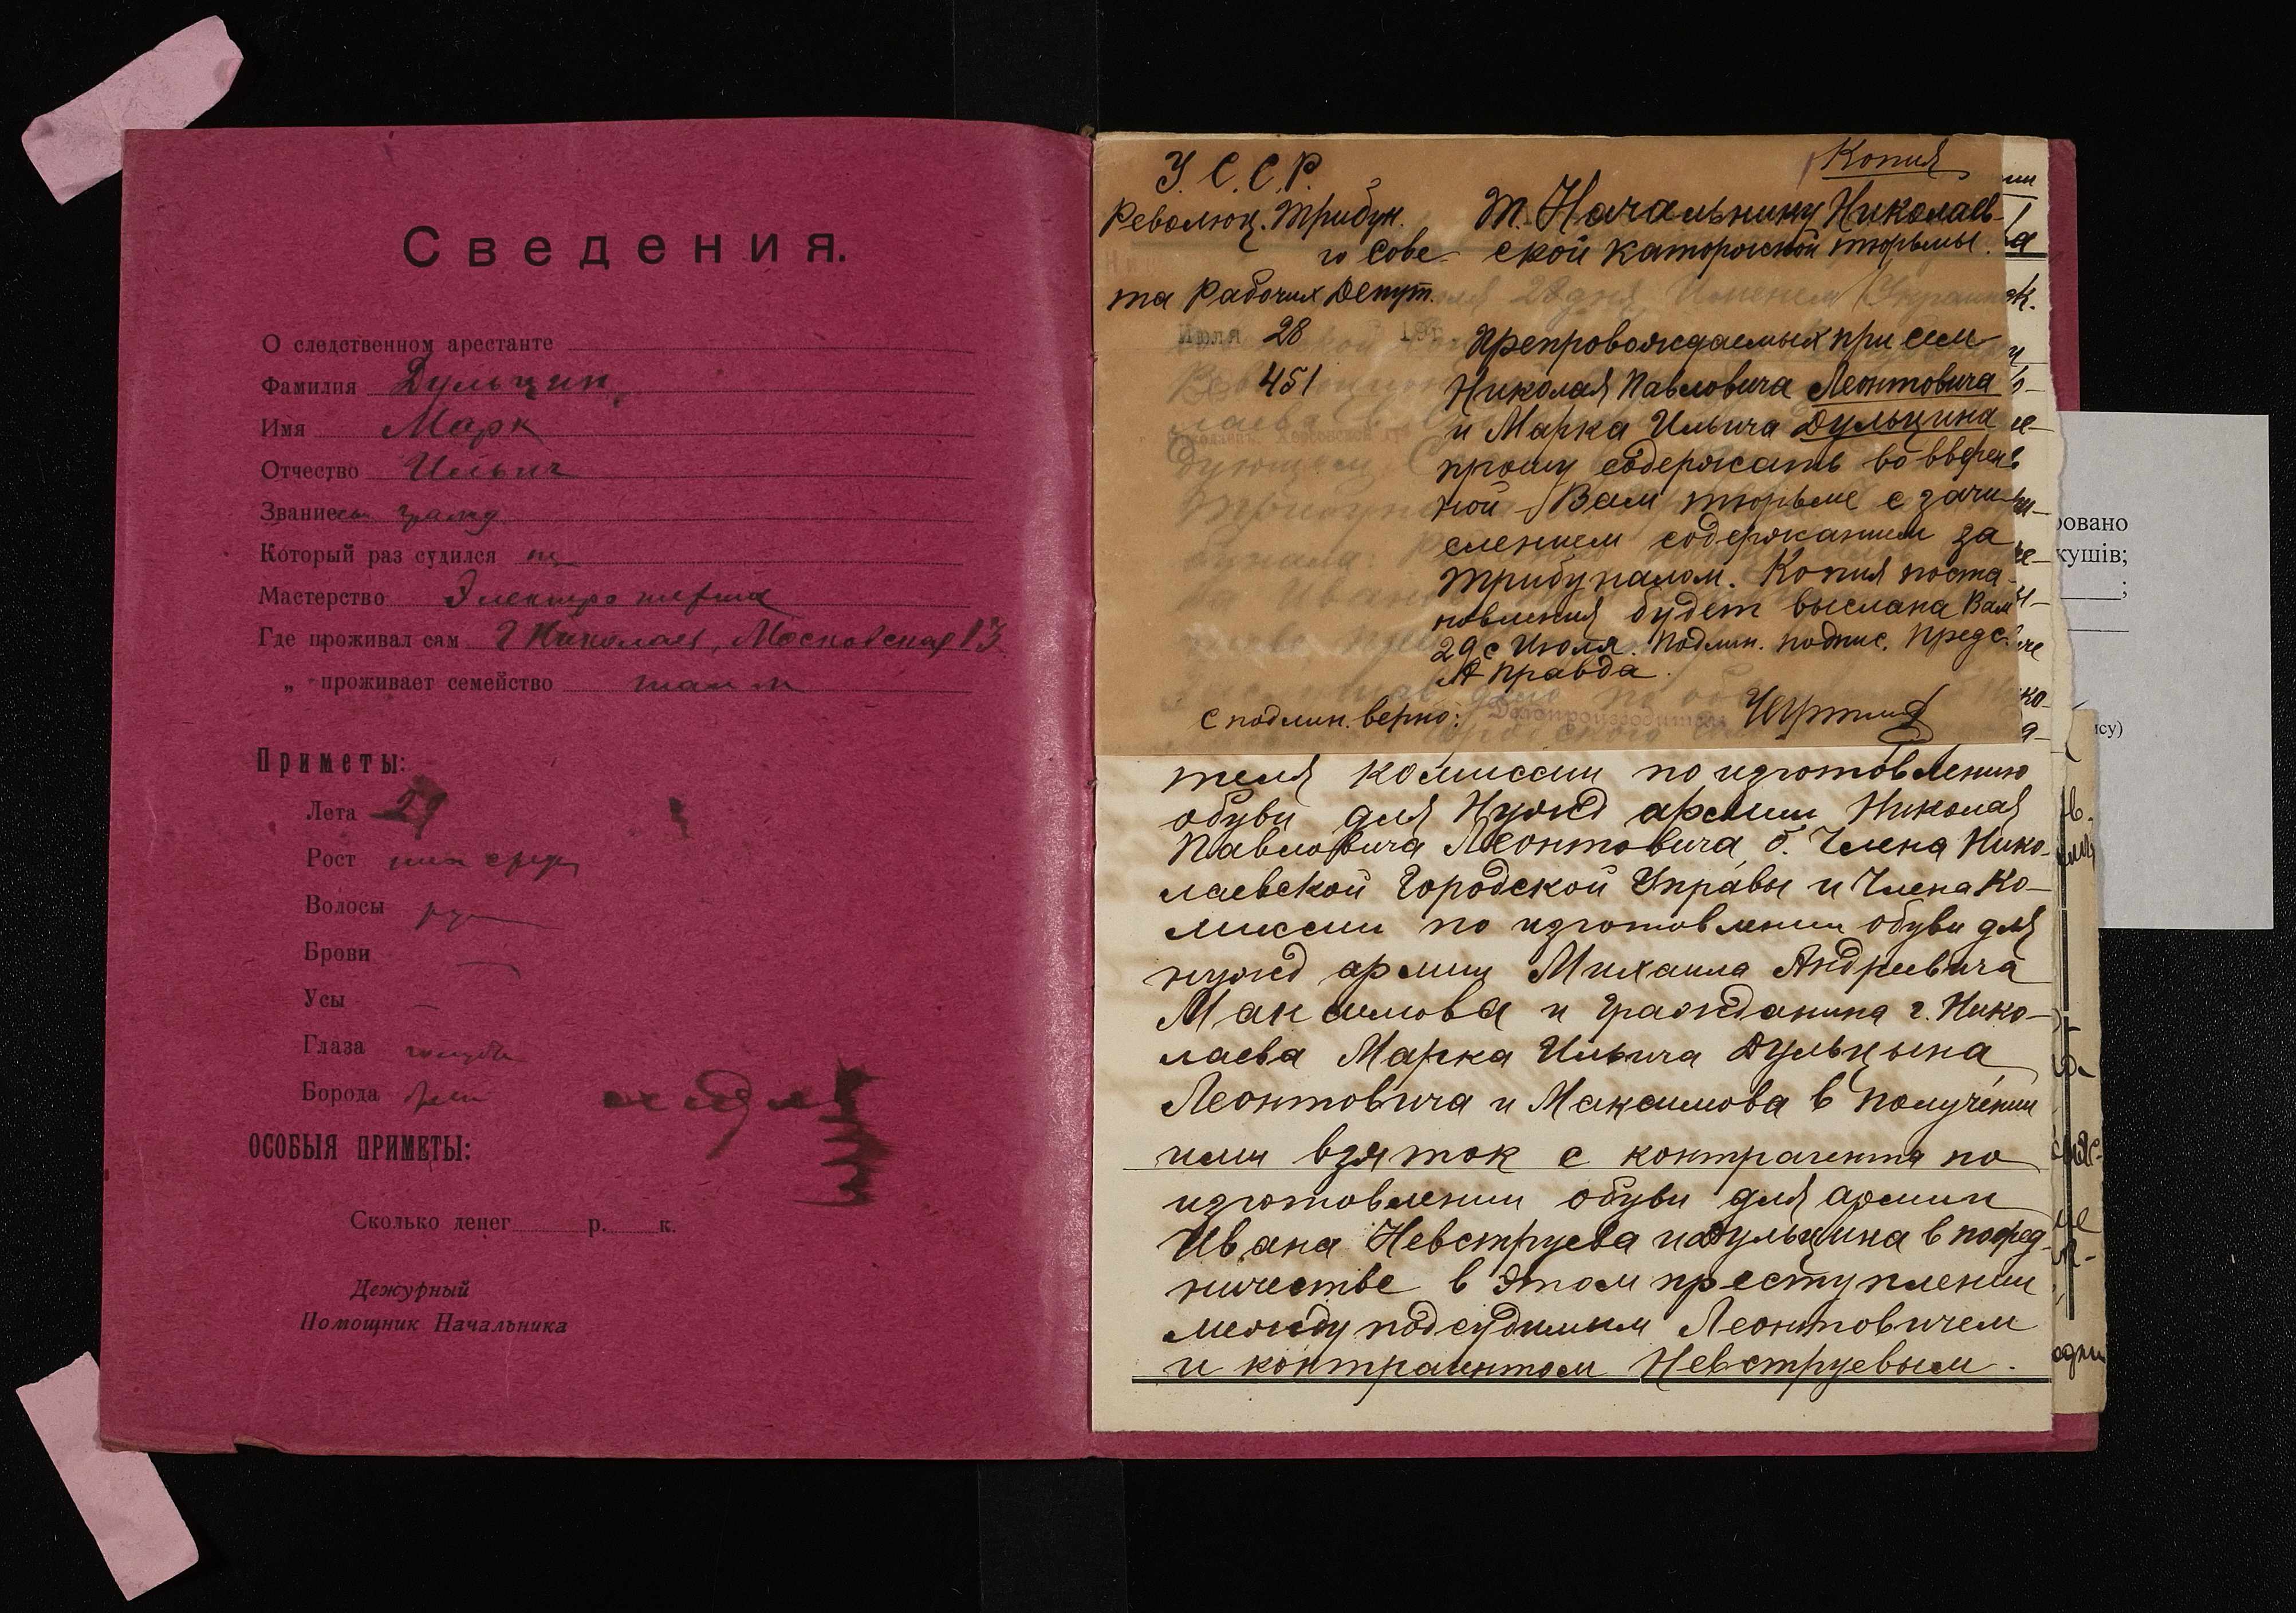 Сведения.
О следственном арестанте
Фамилия Дульцин
Имя Марк
Отчество Ильич
Звание гражд
Который раз судился
Мастерство
Где проживал сам г Николаев, Московская 13
„ проживает семейство там
Приметы:
Лета 29
Рост
Волосы
Брови
Усы
Глаза
Борода
ОСОБЫЯ ПРИМЕТЫ:
Сколько денег р. к.
Дежурный
Помощник Начальника
Копия
У.С.С.Р.
Революц. Трибун.
го Сове-
та Рабочих Депут.
Июля 28
451
Т. Начальнику Николаев-
ской каторжной тюрьмы.
Препровождаемых при сем
Николая Павловича Леонтовича
и Марка Ильича Дульцина
прошу содержать во вверен-
ной Вам тюрьме с зачи-
слением содержанием за
Трибуналом. Копия поста-
новления будет выслана Вам
29 с Июля. Подлин. подпис. Предс.
А Правда.
С подлин. верно: Делопроизводитель
теля комиссии по изготовлению
обуви для Нужд армии Николая
Павловича Леонтовича, б. Члена Нико-
лаевской Городской Управы и Члена Ко-
миссии по изготовлении обуви для
нужд армии Михаила Андреевича
Максимова и Гражданина г. Нико-
лаева Марка Ильича Дульцына
Леонтовича и Максимова в получении
ими взяток с контрагента по
изготовлении обуви для армии
Ивана Невструева и Дульцина в посред-
ничестве в этом преступлении
между подсудимым Леонтовичем
и контрагентом Невструевым.
овано
кушів;